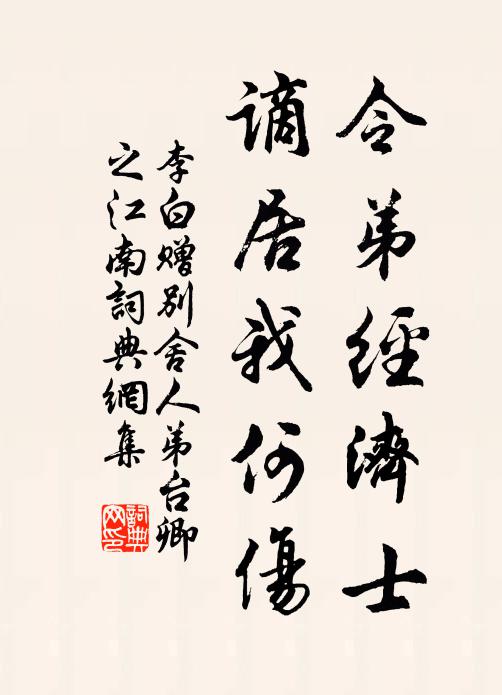 令弟經濟士
謫居我何傷
李白赠別舍人弟台卿
之江南詞典網集
詞典
网印